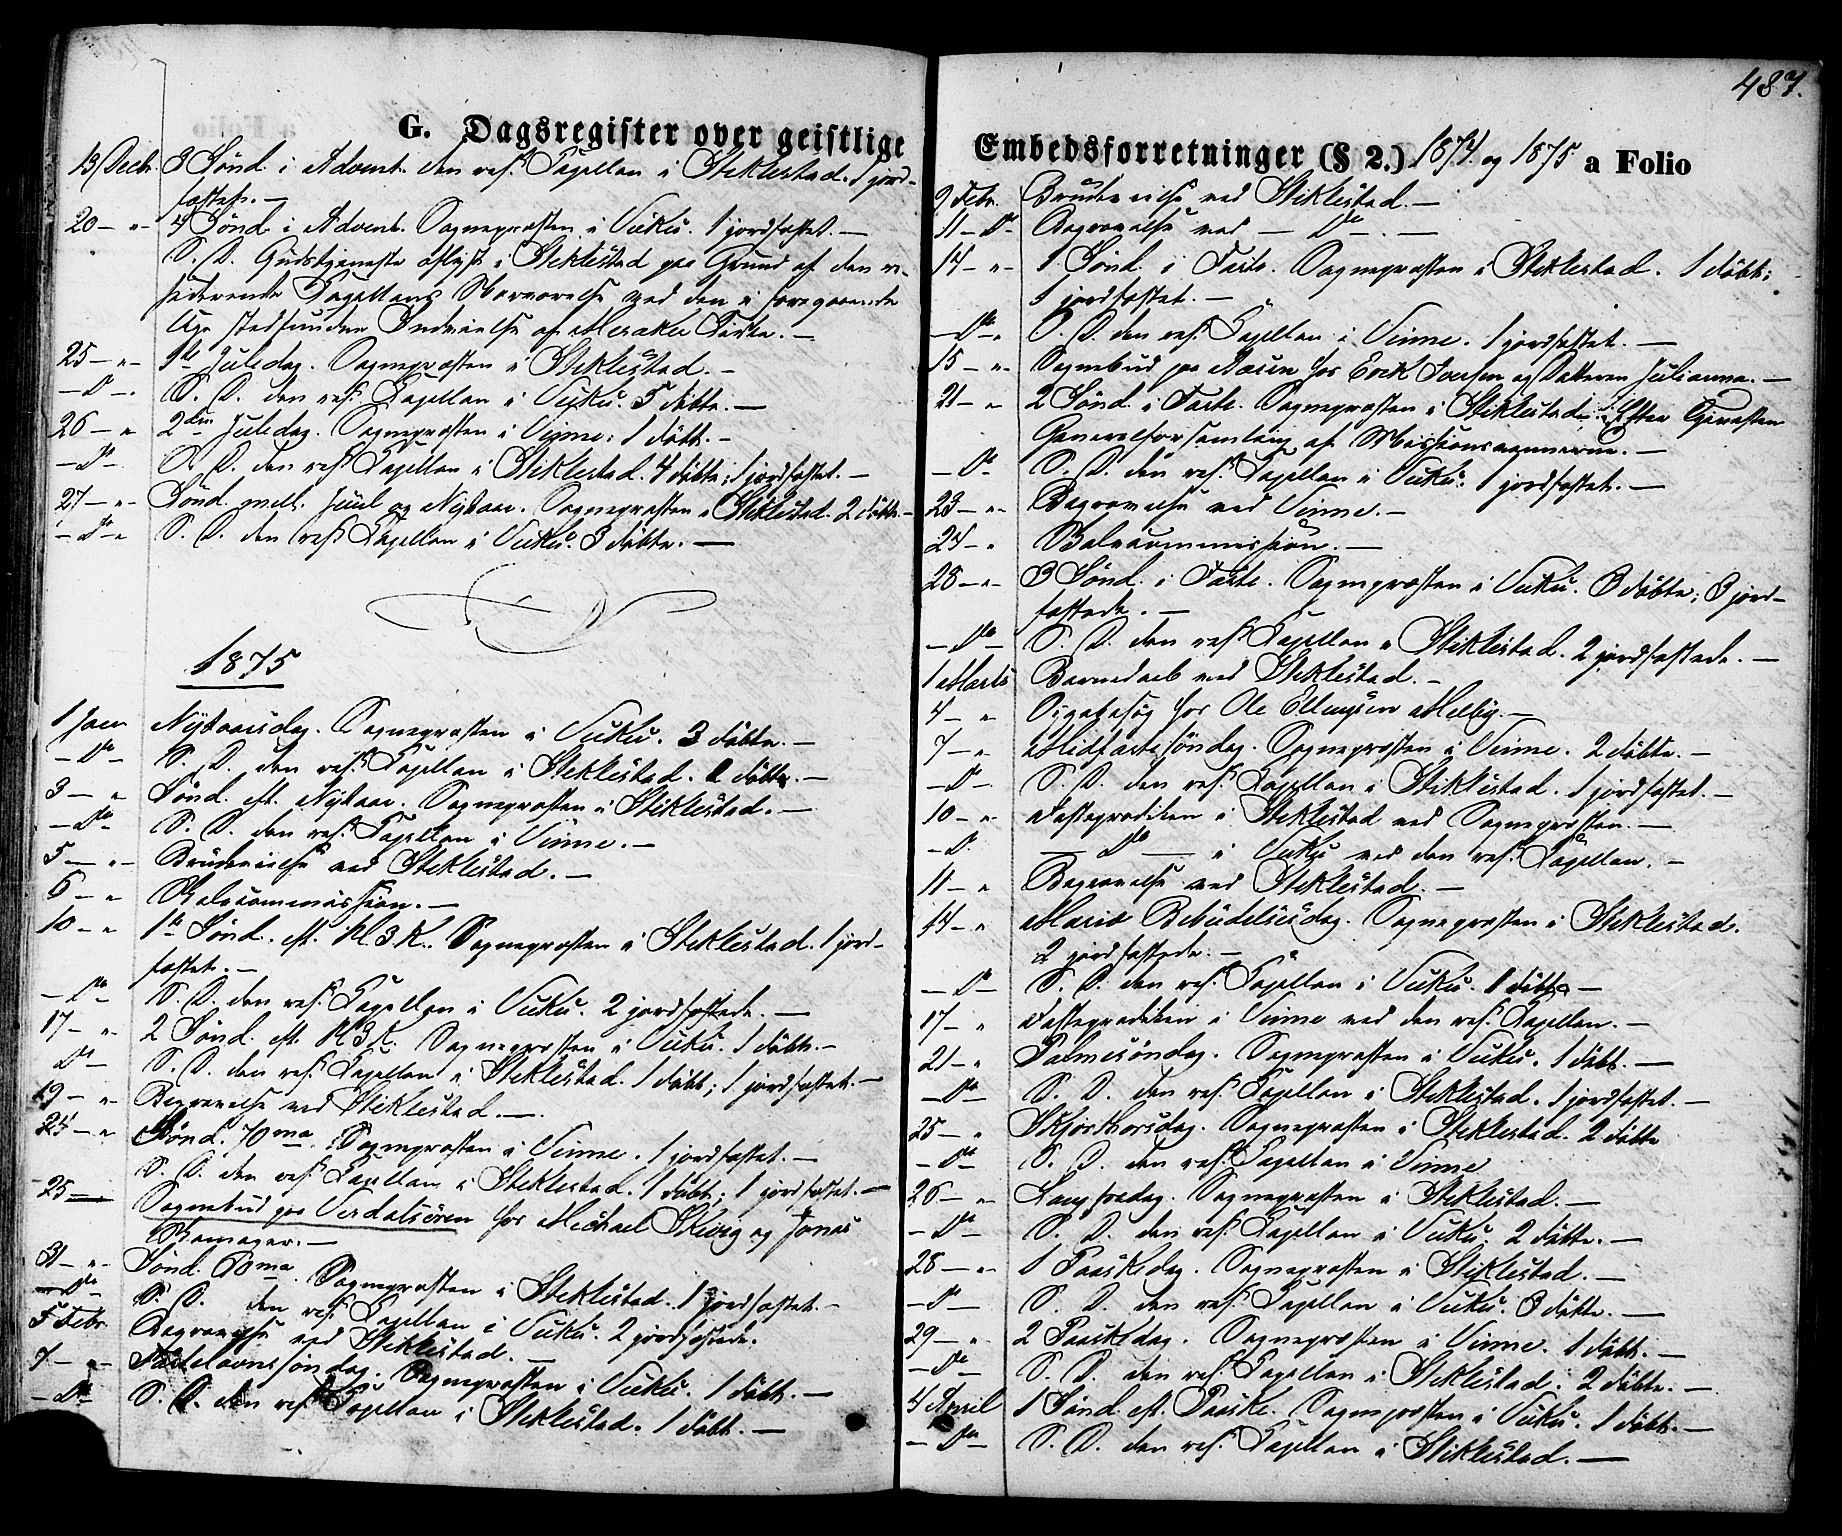 G. Dagsregister over geistlige
13 Decbr. 3 Sønd. i Advent. Den res. Capellan i Stiklestad. 1 jord-
fæstet. —
20 — " — 4 Sønd. i Advent. Sognepræsten i Vuku. 1 jordfæstet. —
S. D. Gudstjeneste aflyst i Stiklestad paa Grund af den re-
siderende Capellans Nærværelse ved den i foregaaende
Uge stedfundne Indvielse af Meraker Kirke. —
25 — " — 1ste Juledag. Sognepræsten i Stiklestad. —
— Do — S. D. den res. Capellan i Vuku. 5 døbte. —
26 — " 2den Juledag. Sognepræsten i Vinne. 1 døbt. —
— Do — S. D. den res. Capellan i Stiklestad. 4 døbte; 1 jordfæstet. —
27 — " — Sønd. mell. Juul og Nytaar. Sognepræsten i Stiklestad. 2 døbte. —
— Do — S. D. den res. Capellan i Vuku. 3 døbte. —
1875
1 Jan Nytaarsdag. Sognepræsten i Vuku. 3 døbte. —
— Do — S. D. den res. Capellan i Stiklestad. 2 døbte. —
3 — " Sønd. eft. Nytaar. Sognepræsten i Stiklestad. —
— Do S. D. den res. Capellan i Vinne. —
5 — " — Brudevielse ved Stiklestad. —
6 — " Valgcommission. —
10 — " 1ste Sønd. eft. H3K. Sognepræsten i Stiklestad. 1 jord-
fæstet. —
— Do — S. D. den res. Capellan i Vuku. 2 jordfæstede. —
17 — " 2 Sønd. eft. H3K. Sognepræsten i Vuku. 1 døbt. —
Do — S. D. den res. Capellan i Stiklestad. 1 døbt; 1 jordfæstet. —
19 — " Begravelse ved Stiklestad. —
24 — " Sønd. 70ma. Sognepræsten i Vinne. 1 jordfæstet. —
S. D. den res. Capellan i Stiklestad. 1 døbt; 1 jordfæstet. —
25 — Sognebud paa Verdalsøren hos Michael Skvig og Jonas
Ramager. —
31 — " — Sønd. 60ma. Sognepræsten i Stiklestad. 1 jordfæstet. —
— Do — S. D. den res. Capellan i Vuku. 2 jordfæstede.
5 Febr. Begravelse ved Stiklestad. —
7 — " — Fastelavnssøndag. Sognepræsten i Vuku. 1 døbt. —
— Do S. D. den res. Capellan i Stiklestad. 1 døbt. —
487.
Embedsforretninger (§ 2.) 1874 og 1875 a Folio
9 Febr. Brudevielse ved Stiklestad. —
11 — Do Begravelse ved — Do — . —
14 — " — 1 Sønd. i Faste. Sognepræsten i Stiklestad. 1 døbt;
1 jordfæstet. —
— Do — S. D. den res. Capellan i Vinne. 1 jordfæstet. —
15 — " — Sognebud paa Næsun hos Erik Iversen og Datteren Julianna. —
21 — " 2 Sønd. i Faste. Sognepræsten i Stiklestad. Efter Tjenesten
Generalforsamling af Missionsvennerne. —
— Do — S. D. den res. Capellan i Vuku. 1 jordfæstet. —
23 — " — Begravelse ved Vinne. —
24 — " Valgcommission. —
28 — " — 3 Sønd. i Faste. Sognepræsten i Vuku. 3 døbte; 3 jord-
fæstede. —
— Do — S. D. den res. Capellan i Stiklestad. 2 jordfæstede. —
1 Marts Barnedaab ved Stiklestad. —
4 — " Sygebesøg hos Ole Ellingsen Melby. —
7 — " Midfastesøndag. Sognepræsten i Vinne. 2 døbte. —
— Do — S. D. den res. Capellan i Stiklestad. 1 jordfæstet. —
10 — " Fasteprædiken i Stiklestad ved Sognepræsten. —
— Do — Do — i Vuku ved den res. Capellan. —
11 — " Begravelse ved Stiklestad. —
14 — " Mariæ Bebudelsesdag. Sognepræsten i Stiklestad.
2 jordfæstede. —
— Do — S. D. den res. Capellan i Vuku. 1 døbt —
17 — " Fasteprædiken i Vinne ved den res. Capellan. —
21 — " Palmesøndag. Sognepræsten i Vuku. 1 døbt. —
— Do — S. D. den res. Capellan i Stiklestad. 1 jordfæstet. —
25 — " Skjærthorsdag. Sognepræsten i Stiklestad. 2 døbte
— Do — S. D. den res. Capellan i Vinne
26 — " Langfredag. Sognepræsten i Stiklestad. —
— Do — S. D. den res. Capellan i Vuku. 2 døbte. —
28 — " 1 Paaskedag. Sognepræsten i Stiklestad. —
— Do — S. D. den res. Capellan i Vuku. 3 døbte. —
29 — " 2 Paaskedag. Sognepræsten i Vinne. 1 døbt. —
— Do — S. D. den res. Capellan i Stiklestad. 2 døbte. —
4 April 1 Sønd eft. Paaske. Sognepræsten i Vuku. 1 døbt. —
— Do — S. D. den res. Capellan i Stiklestad. —